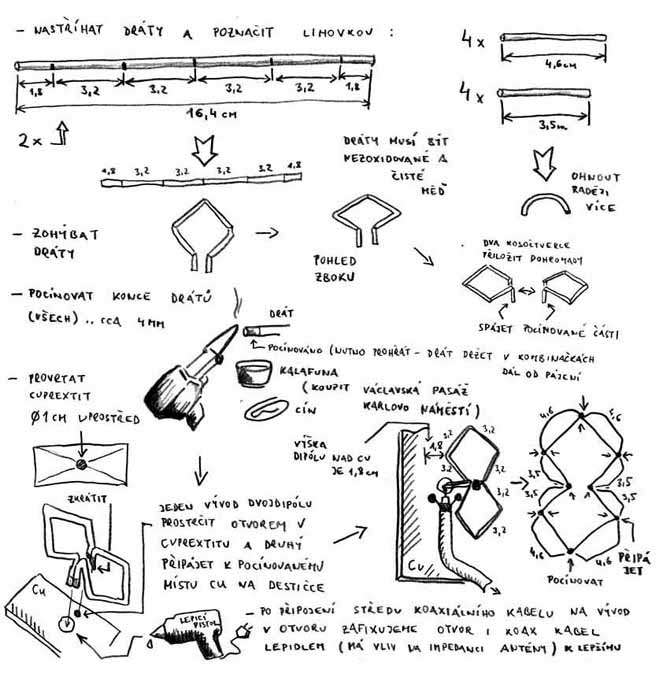 - NASTŘÍHAT DRÁTY A POZNAČIT LIHOVKOU :
1,8 3,2 3,2 3,2 3,2 1,8
16,4 CM
2x
4x
4,6 CM
4x
3,5 m.
1,8 3,2 3,2 3,2 3,2 1,8
DRÁTY MUSÍ BÝT
NEZOXIDOVANÉ A
ČISTÉ
MĚĎ
OHNOUT
RADĚJI
VÍCE
- ZOHÝBAT
DRÁTY
POHLED
ZBOKU
DVA KOSOČTVERCE
PŘILOŽIT DOHROMADY
SPÁJET POCÍNOVANÉ ČÁSTI
- POCÍNOVAT KONCE DRÁTŮ
(VŠECH) .. CCA 4 MM
DRÁT
POCÍNOVÁNO (NUTNO PROHŘÁT - DRÁT DRŽET V KOMBINAČKÁCH
DÁL OD PÁJENÍ
KALAFUNA
(KOUPIT VÁCLAVSKÁ PASÁŽ
KARLOVO NÁMĚSTÍ)
CÍN
- PROVRTAT
CUPREXTIT
Ø1CM UPROSTŘED
VÝŠKA
DIPÓLU NAD CU
JE 1,8 CM
1,8
3,2 3,2
3,2 3,2
3,2
3,2
Cu
4,6 4,6
3,5 3,5
3,5 3,5
4,6 4,6
PŘIPÁ
JET
POCÍNOVAT
ZKRÁTIT
Cu
JEDEN VÝVOD DVOJDIPÓLU
PROSTRČIT OTVOREM V
CUPREXTITU A DRUHÝ
PŘIPÁJET K POCÍNOVANÉMU
MÍSTU CU NA DESTIČCE
LEPICÍ
PISTOL
- PO PŘIPOJENÍ STŘEDU KOAXIÁLNÍHO KABELU NA VÝVOD
V OTVORU ZAFIXUJEME OTVOR I KOAX KABEL
LEPIDLEM (MÁ VLIV NA IMPEDANCI ANTÉNY) K LEPŠÍMU